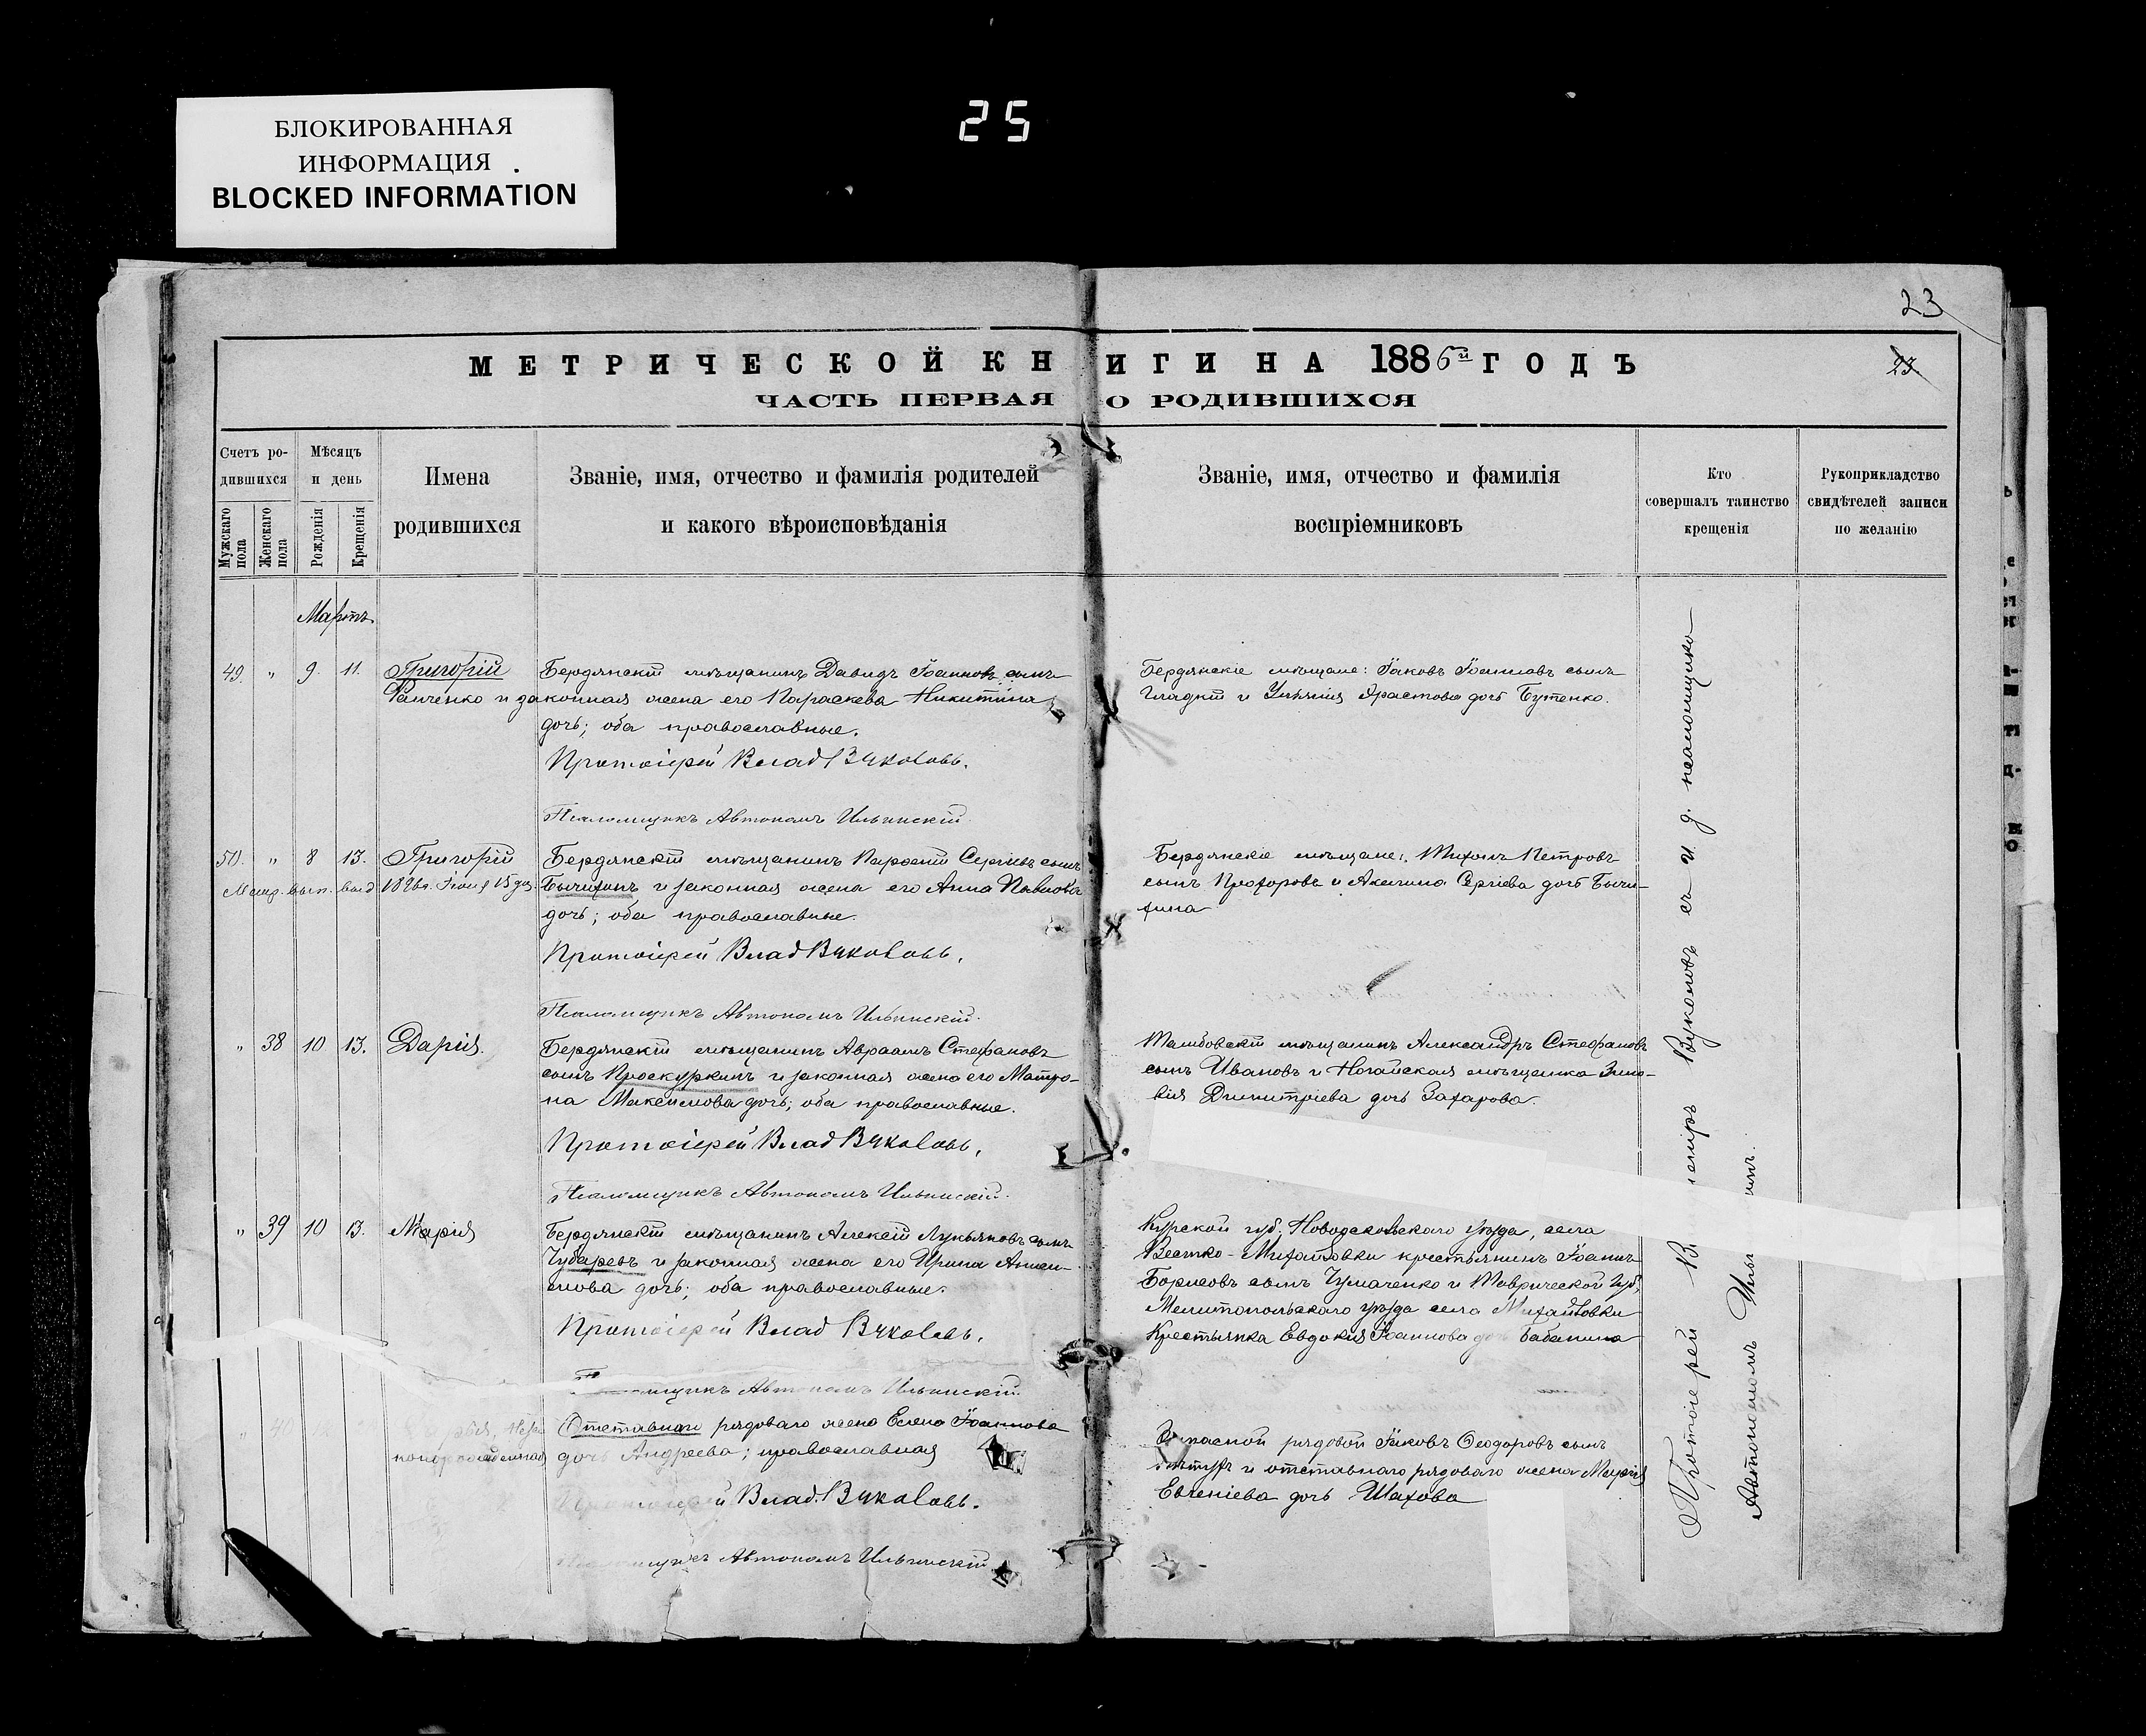 БЛОКИРОВАННАЯ
ИНФОРМАЦИЯ
BLOCKED INFORMATION
25
23
МЕТРИЧЕСКОЙ КНИГИ НА 1886й ГОДЪ
23
ЧАСТЬ ПЕРВАЯ О РОДИВШИХСЯ
Счетъ ро-
дившихся
Мужскаго пола
Женскаго пола
Мѣсяцъ
и день
Рожденія
Крещенія
Имена
родившихся
Званіе, имя, отчество и фамилія родителей
и какого вѣроисповѣданія
Званіе, имя, отчество и фамилія
воспріемниковъ
Кто
совершалъ таинство
крещенія
Рукоприкладство
свидѣтелей записи
по желанію
Мартъ
49. " 9. 11. Григорій
Бердянскій мѣщанинъ Давидъ Іоанновъ сынъ
и законная жена его Параскева Никитина
дочь; оба православные.
Протоіерей Влад Вуколовъ.
Псаломщикъ Автономъ Ильинскій
Бердянскіе мѣщане: Іаковъ Іоанновъ сынъ
Гладкій и дочь Бутенко.
50. " 8 13. Григорій
Бердянскій мѣщанинъ Сергіевъ сынъ
и законная жена его Анна Павлова
дочь; оба православные.
Протоіерей Влад Вуколовъ.
Псаломщикъ Автономъ Ильинскій.
Бердянскіе мѣщане: Петровъ
сынъ Прохоровъ и Акилина Сергіева дочь
" 38 10 13. Дарія.
Бердянскій мѣщанинъ Авраамъ Стефановъ
сынъ Проскуркинъ и законная жена его Матро-
на Максимова дочь; оба православные.
Протоіерей Влад Вуколовъ.
Псаломщикъ Автономъ Ильинскій.
Тамбовскій мѣщанинъ Александръ Стефановъ
сынъ Ивановъ и Ногайская мѣщанка Зино-
вія Димитріева дочь Захарова.
" 39 10 13. Марія
Бердянскій мѣщанинъ Алексій Лукьяновъ сынъ
Чубаревъ и законная жена его Ирина
дочь; оба православные.
Протоіерей Влад Вуколовъ.
Автономъ Ильинскій.
Курской губ. Новооскольскаго уѣзда, села
Михайловки крестьянинъ Іоаннъ
Борисовъ сынъ Чумаченко и Таврической губ.
Мелитопольскаго уѣзда села Михайловки
Крестьянка Евдокія Іоаннова Бабанина
Отставнаго рядоваго жена Елена Іоаннова
дочь Андреева; православная
Влад. Вуколовъ.
Автономъ Ильинскій
Запасной рядовой Іаковъ Ѳеодоровъ сынъ
и отставнаго рядоваго жена Марія
Евгеніева дочь Шахова
Протоіерей Вуколовъ съ и. д. псаломщика
Автономомъ